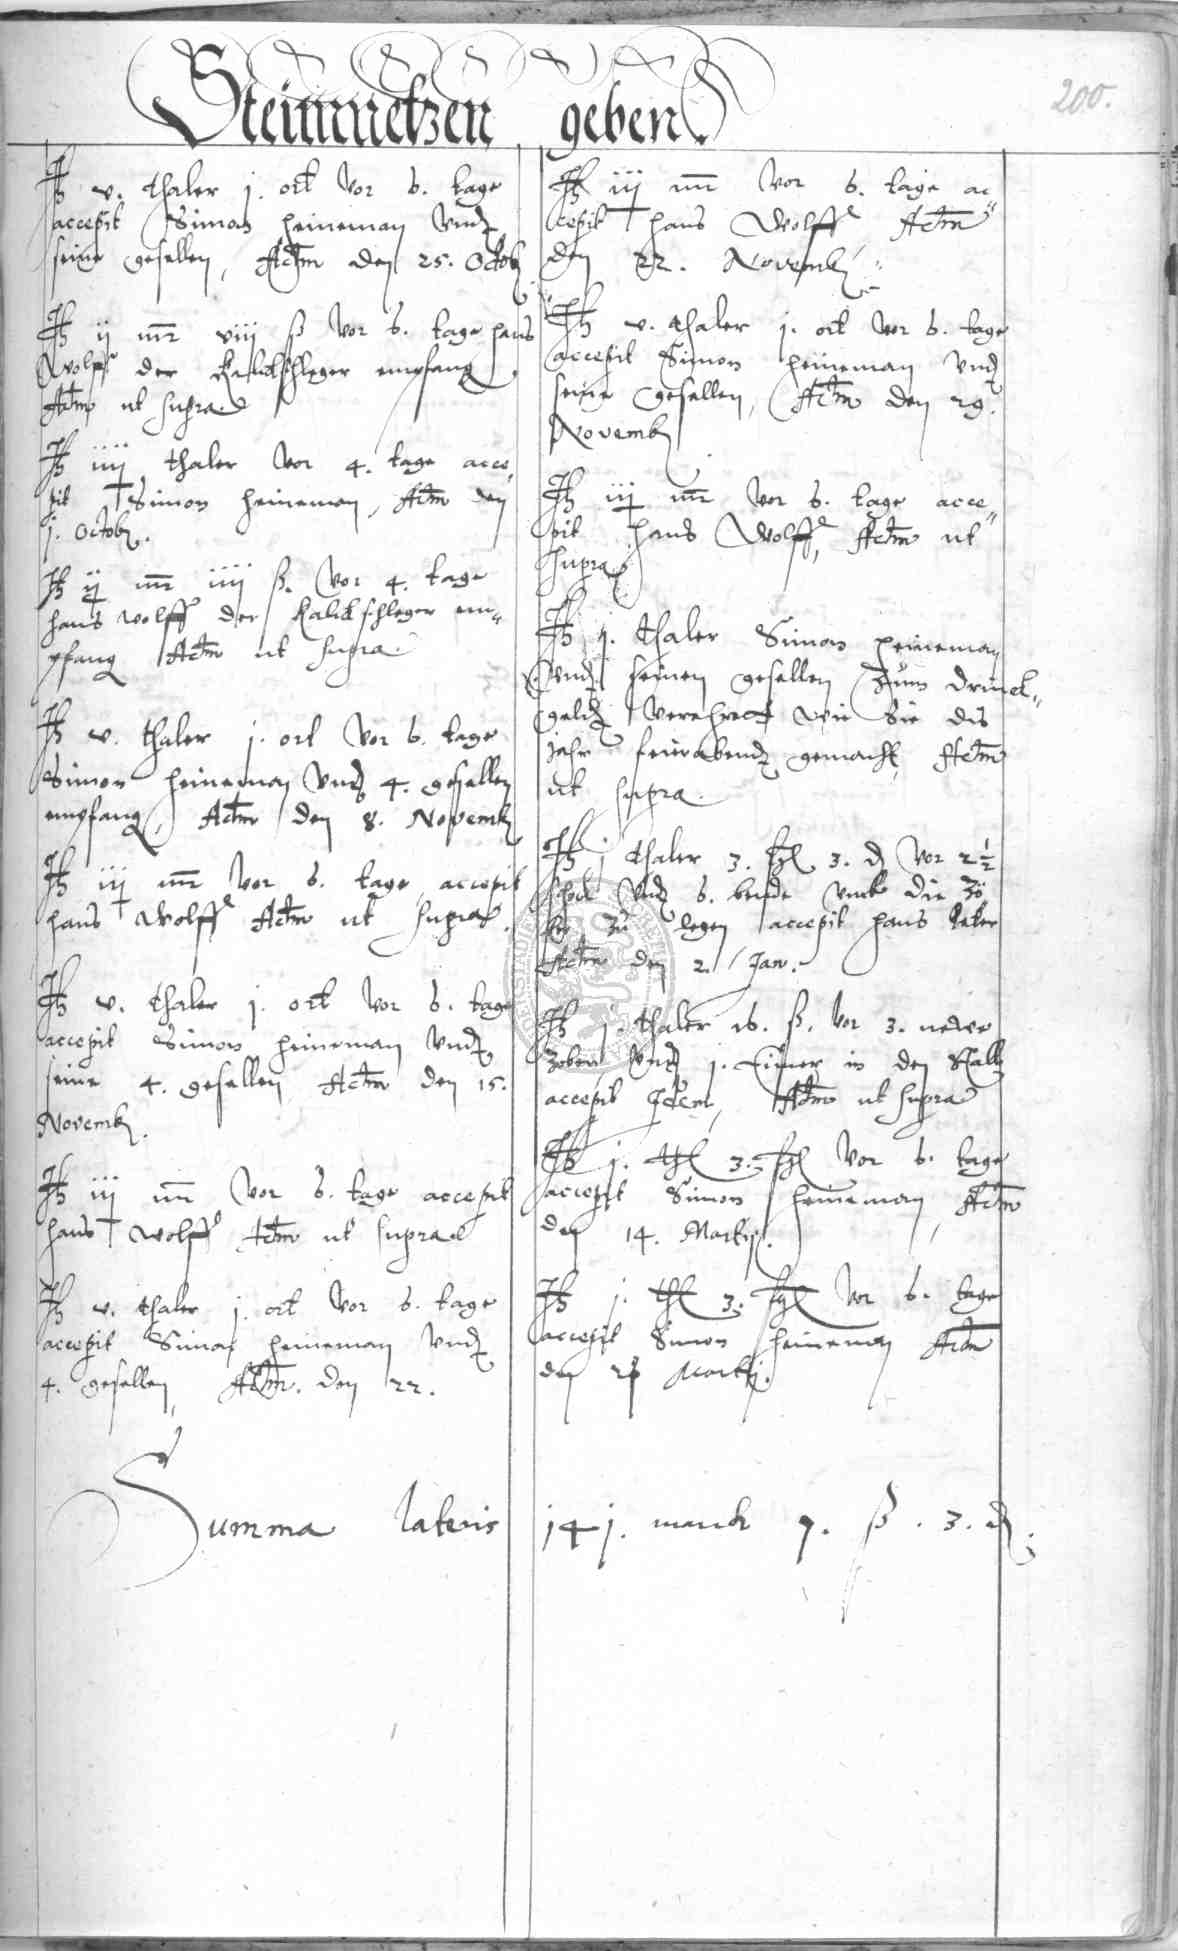 Steinmetzen geben
200.
It v. thaler j. ort vor 6. tage
accepit Simon heineman vnd
seine gesellen, Actm den 25. Octob
It ij mr viij ß vor 6. tage hans
Wolff der kalckschleger empfang
Actm ut supra
It iiij thaler vor 4. tage acce
pit Simon heineman, Actm den
j. Octob.
It ij mr iiij ß. vor 4. tage
hans wolff der kalckschleger em„
pfang Actm ut supra
It v. thaler j. ort vor 6. tage
Simon heineman vnd 4. gesellen
empfang, Actm den 8. Novemb
It iij mr vor 6. tage accepit
hans Wolff Actm ut supra.
It v. thaler j. ort vor 6. tage
accepit Simon heineman vnd
seine 4. gesellen Actm den 15.
Novemb.
It iij mr vor 6. tage accepit
hans wolff Actm ut supra
It v. thaler j. ort vor 6. tage
accepit Simon heineman vnd
4. gesellen, Actm. den 22.
It iij mr vor 6. tage ac„
cepit hans Wolff, Actm
den 22. Novemb
It v. thaler j. ort vor 6. tage
accepit Simon heineman vnd
seine gesellen, Actm den 29.
Novemb
It iij mr vor 6. tage acce„
pit hans Wolff, Actm ut
supra
It j. thaler Simon heineman
vnd seinen gesellen zum drinck„
geld verehret wie sie dis
jahr feierabend gemacht, Actm
ut supra.
It j thaler 3. 3. d vor 2 1/2
schock vnd 6. bende vmb die
zu legen accepit hans
Actm den 2. Jan.
It j. thaler 16. ß. vor 3. newe
zober vnd j. Eimer in den Stall
accepit Idem, Actm ut supra
It j. thl 3. vor 6. tage
accepit Simon heineman, Actm
den 14. Martij.
It j. thl 3. vor 6. tage
accepit Simon heineman Actm
den Martij.
Summa lateris 141. marck 7. ß. 3. d.